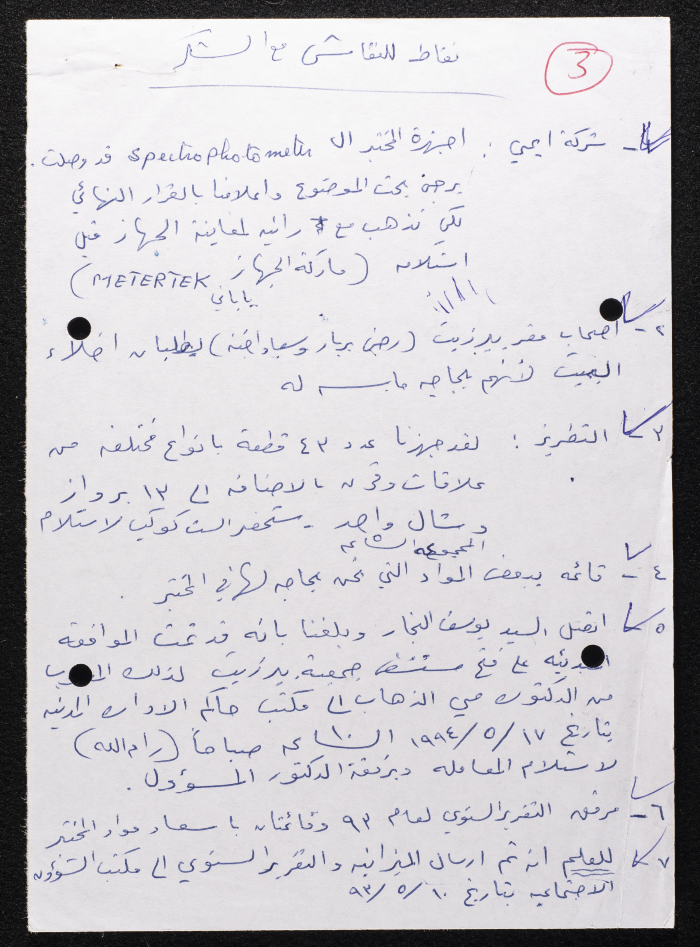 نقاط للنقاش مع
3
١- شركة ايمي : اجهزة المختبر الـ spectrophotometer قد وصلت.
يرجى بحث الموضوع واعلامنا بالقرار النهائي
لكي نذهب مع رانيه لمعاينة الجهاز قبل
استلامه (ماركة الجهاز METERTEK)
ياباني
٢- اصحاب مقر بيرزيت (رضى بربار وسعاد اخته) يطلبان اخلاء
البيت لأنهم بحاجه ماسه له
٣- التطريز : لقد جهزنا عدد ٤٣ قطعة بانواع مختلفه من
علاقات بالاضافه الى ١٣ برواز
وشال واحد - ستحضر الست كوكب لاستلام
المجموعه الساعه
٤- قائمه ببعض المواد التي نحن بحاجه لها في المختبر .
٥- اتصل السيد يوسف النجار وبلغنا بانه قد تمت الموافقه
على فتح مستشفى جمعية بيرزيت لذلك
من الدكتوره مي الذهاب الى مكتب حاكم الاداره المدنيه
بتاريخ ١٧/٥/١٩٩٤ الساعه ١٠ صباحاً (رام الله)
لاستلام المعامله وبرفقة الدكتور المسؤول .
٦- مرفق التقرير السنوي لعام ٩٣ وقائمتان باسعار مواد المختبر
٧- للعلم انه تم ارسال الميزانيه والتقرير السنوي الى مكتب الشؤون
الاجتماعيه بتاريخ ١٠/٥/٩٣